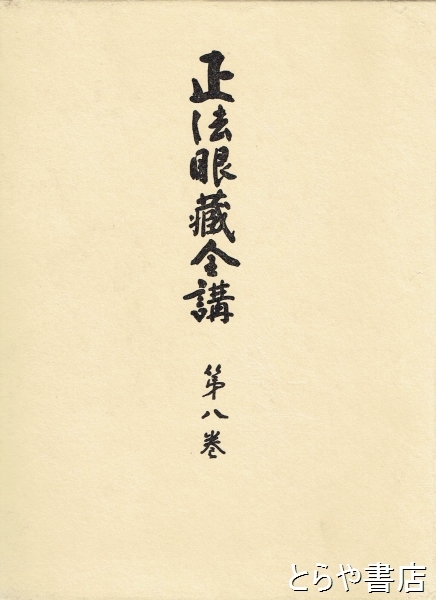 正法眼蔵全講
第八巻
とらや書店